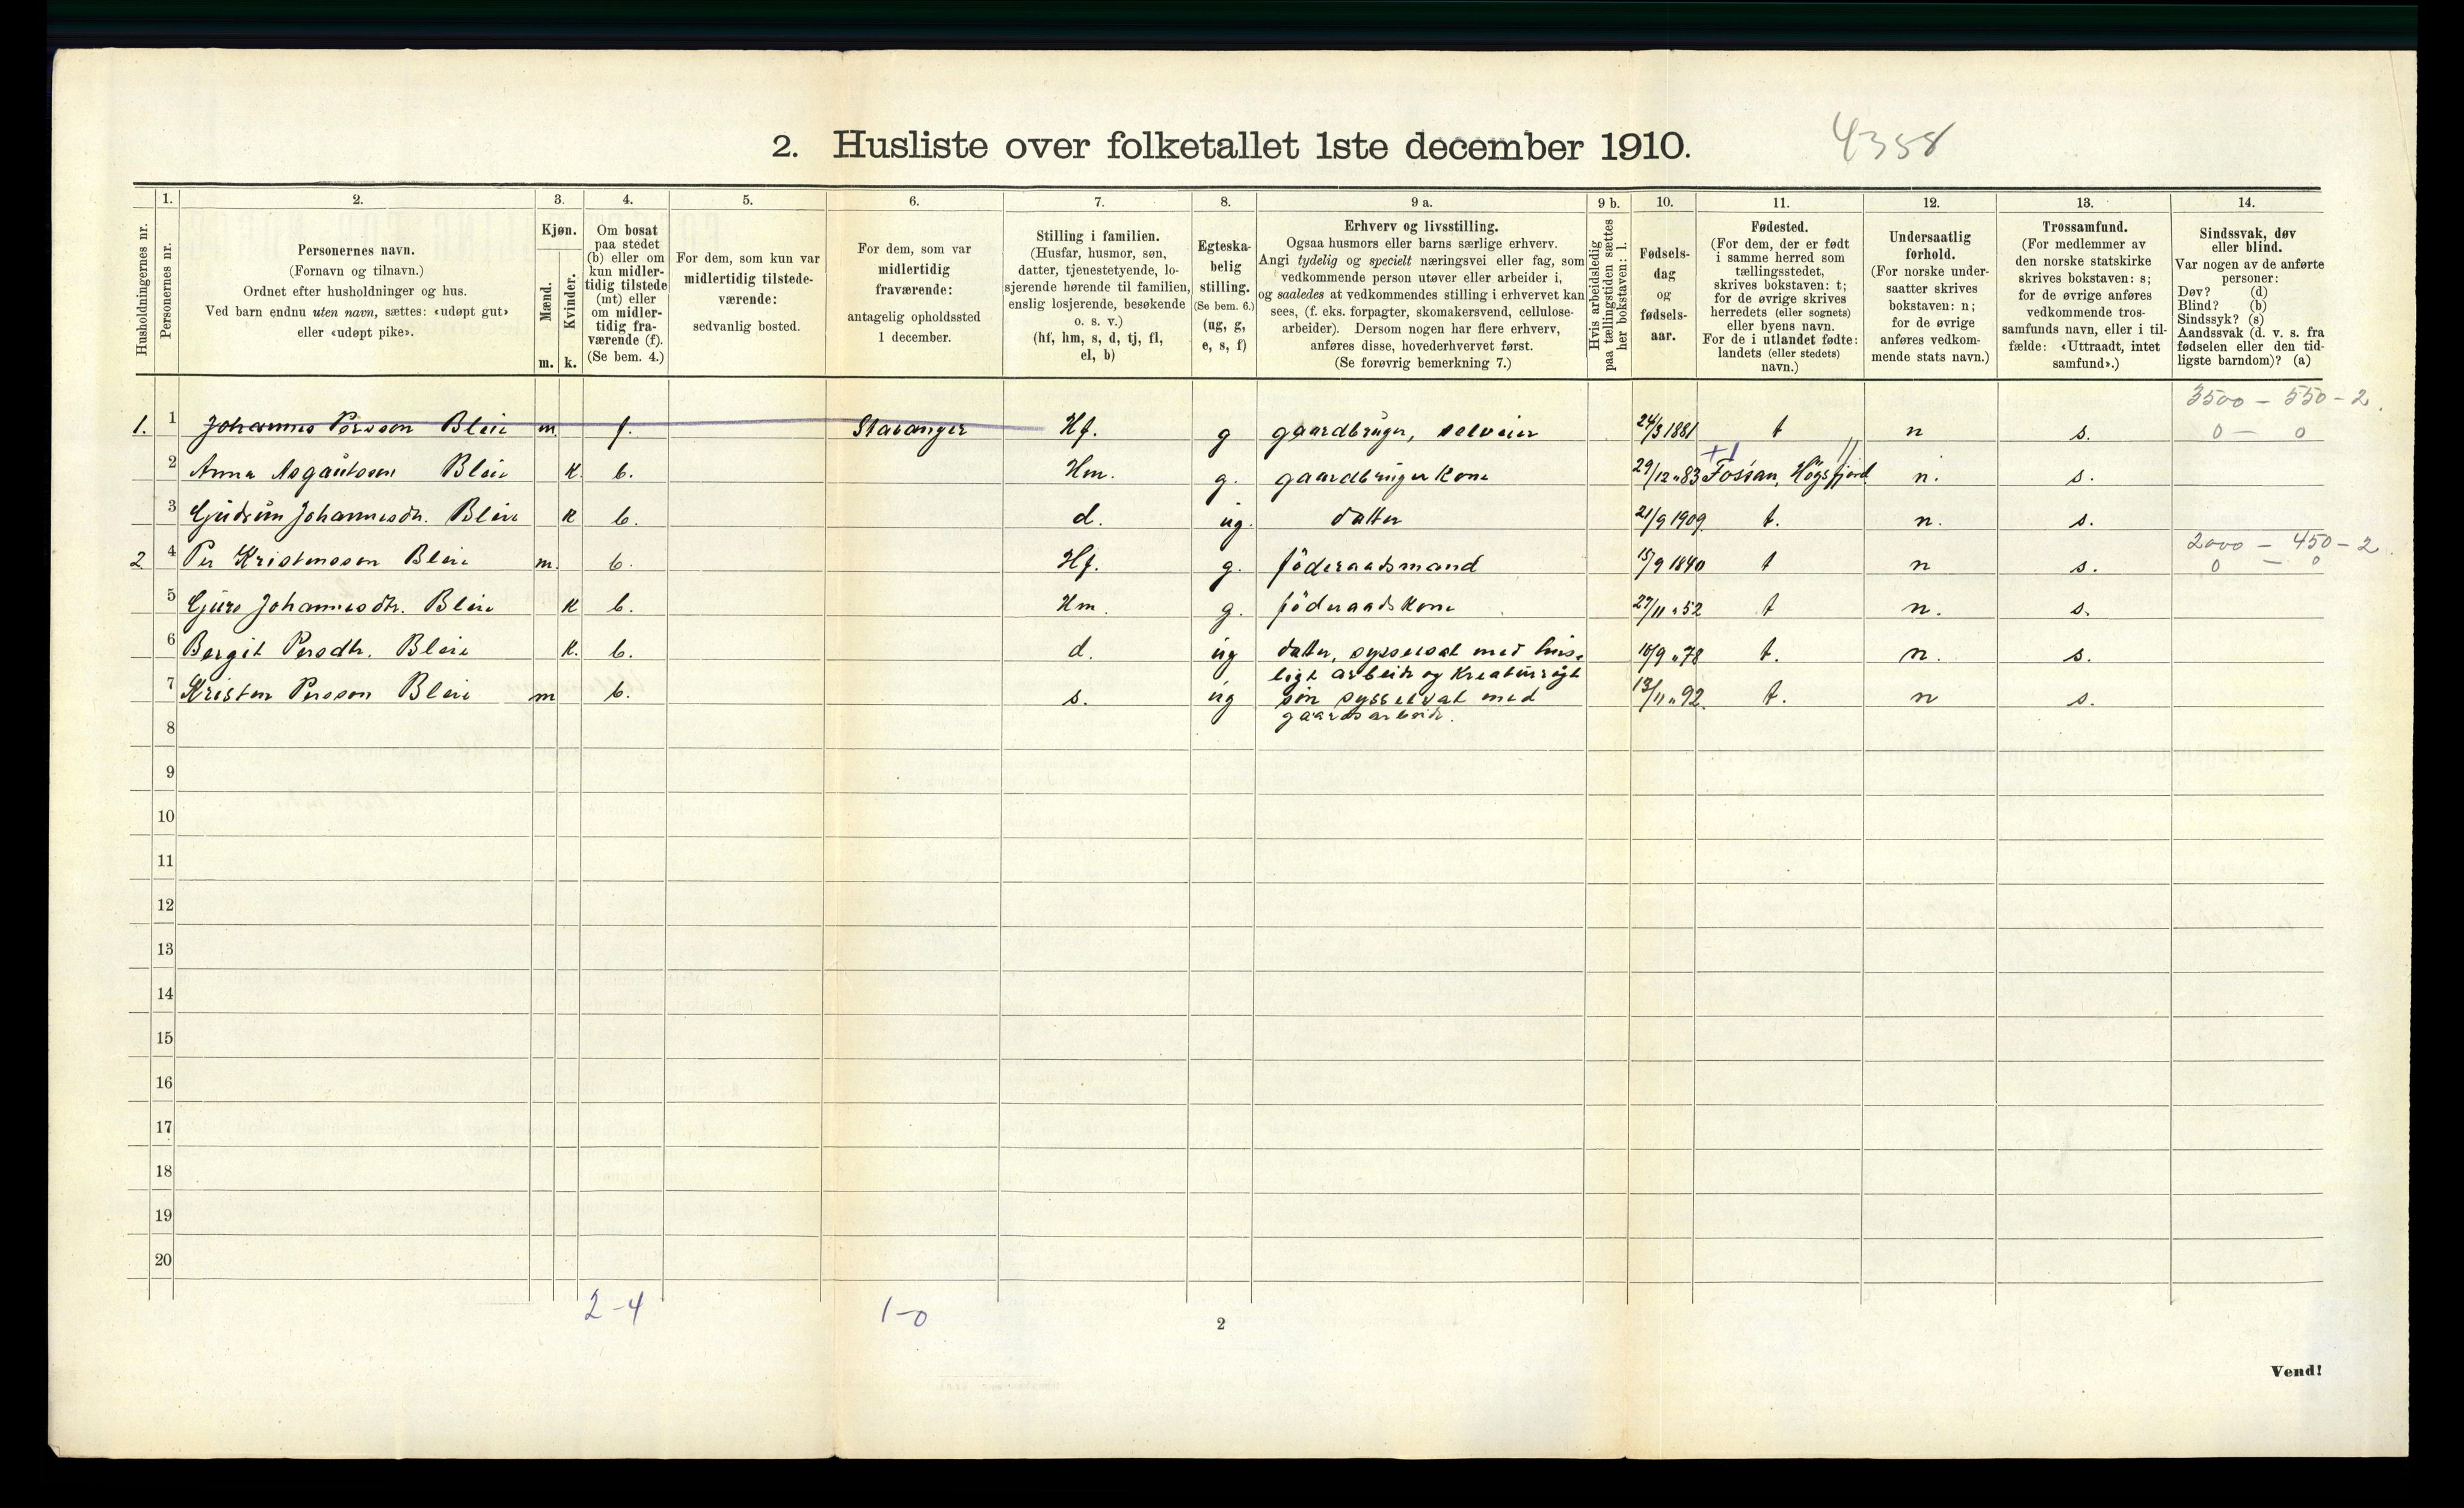 2. Husliste over folketallet 1ste december 1910.
4358
Husholdningernes nr.
1.
Personernes nr.
2.
Personernes navn.
(Fornavn og tilnavn.)
Ordnet efter husholdninger og hus.
Ved barn endnu uten navn, sættes: «udøpt gut»
eller «udøpt pike».
3.
Kjøn.
Mænd.
m.
Kvinder.
k.
4.
Om bosat
paa stedet
(b) eller om
kun midler-
tidig tilstede
(mt) eller
om midler-
tidig fra-
værende (f).
(Se bem. 4.)
5.
For dem, som kun var
midlertidig tilstede-
værende:
sedvanlig bosted.
6.
For dem, som var
midlertidig
fraværende:
antagelig opholdssted
1 december.
7.
Stilling i familien.
(Husfar, husmor, søn,
datter, tjenestetyende, lo-
sjerende hørende til familien,
enslig losjerende, besøkende
o. s. v.)
(hf, hm, s, d, tj, fl,
el, b)
8.
Egteska-
belig
stilling.
(Se bem. 6.)
(ug, g,
e, s, f)
9 a.
Erhverv og livsstilling.
Ogsaa husmors eller barns særlige erhverv.
Angi tydelig og specielt næringsvei eller fag, som
vedkommende person utøver eller arbeider i,
og saaledes at vedkommendes stilling i erhvervet kan
sees, (f. eks. forpagter, skomakersvend, cellulose-
arbeider). Dersom nogen har flere erhverv,
anføres disse, hovederhvervet først.
(Se forøvrig bemerkning 7.)
9 b.
Hvis arbeidsledig
paa tællingstiden sættes
her bokstaven: l.
10.
Fødsels-
dag
og
fødsels-
aar.
11.
Fødested.
(For dem, der er født
i samme herred som
tællingsstedet,
skrives bokstaven: t;
for de øvrige skrives
herredets (eller sognets)
eller byens navn.
For de i utlandet fødte:
landets (eller stedets)
navn.)
12.
Undersaatlig
forhold.
(For norske under-
saatter skrives
bokstaven: n;
for de øvrige
anføres vedkom-
mende stats navn.)
13.
Trossamfund.
(For medlemmer av
den norske statskirke
skrives bokstaven: s;
for de øvrige anføres
vedkommende tros-
samfunds navn, eller i til-
fælde: «Uttraadt, intet
samfund».)
14.
Sindssvak, døv
eller blind.
Var nogen av de anførte
personer:
Døv? (d)
Blind? (b)
Sindssyk? (s)
Aandssvak (d. v. s. fra
fødselen eller den tid-
ligste barndom)? (a)
3500 - 550 - 2.
1. 1 Johannes Persson Bleie m. f. Stavanger Hf. g gaardbruger, selveier 24/3 1881 t n s. 0 - 0
+1
2 Anna Asgautsen Bleie K. b. Hm. g. gaardbruger kone 29/12 "83 Fossan, Högsfjord n. s.
3 Gjudrun Johannesdtr. Bleie K b. d. ug. datter 21/9 1909. t. n. s.
2000 - 450 - 2.
2 4 Per Kristensson Bleie m. b. Hf. g. föderaadsmand 15/9 1840 t n s. 0 - 0
5 Gjuro Johannesdtr. Bleie K b. Hm. g. föderaadskone 27/11 "52 t n. s.
6 Bergit Persdtr. Bleie K. b. d. ug datter, sysselsat med hus-
ligt arbeide og Kreaturrögt 16/9 "78 t. n. s.
7 Kristen Persson Bleie m b. s. ug sön sysselsat med
gaardsarbeide. 13/11 "92. t. n s.
8
9
10
11
12
13
14
15
16
17
18
19
20
2-4
1-0
2
Vend!